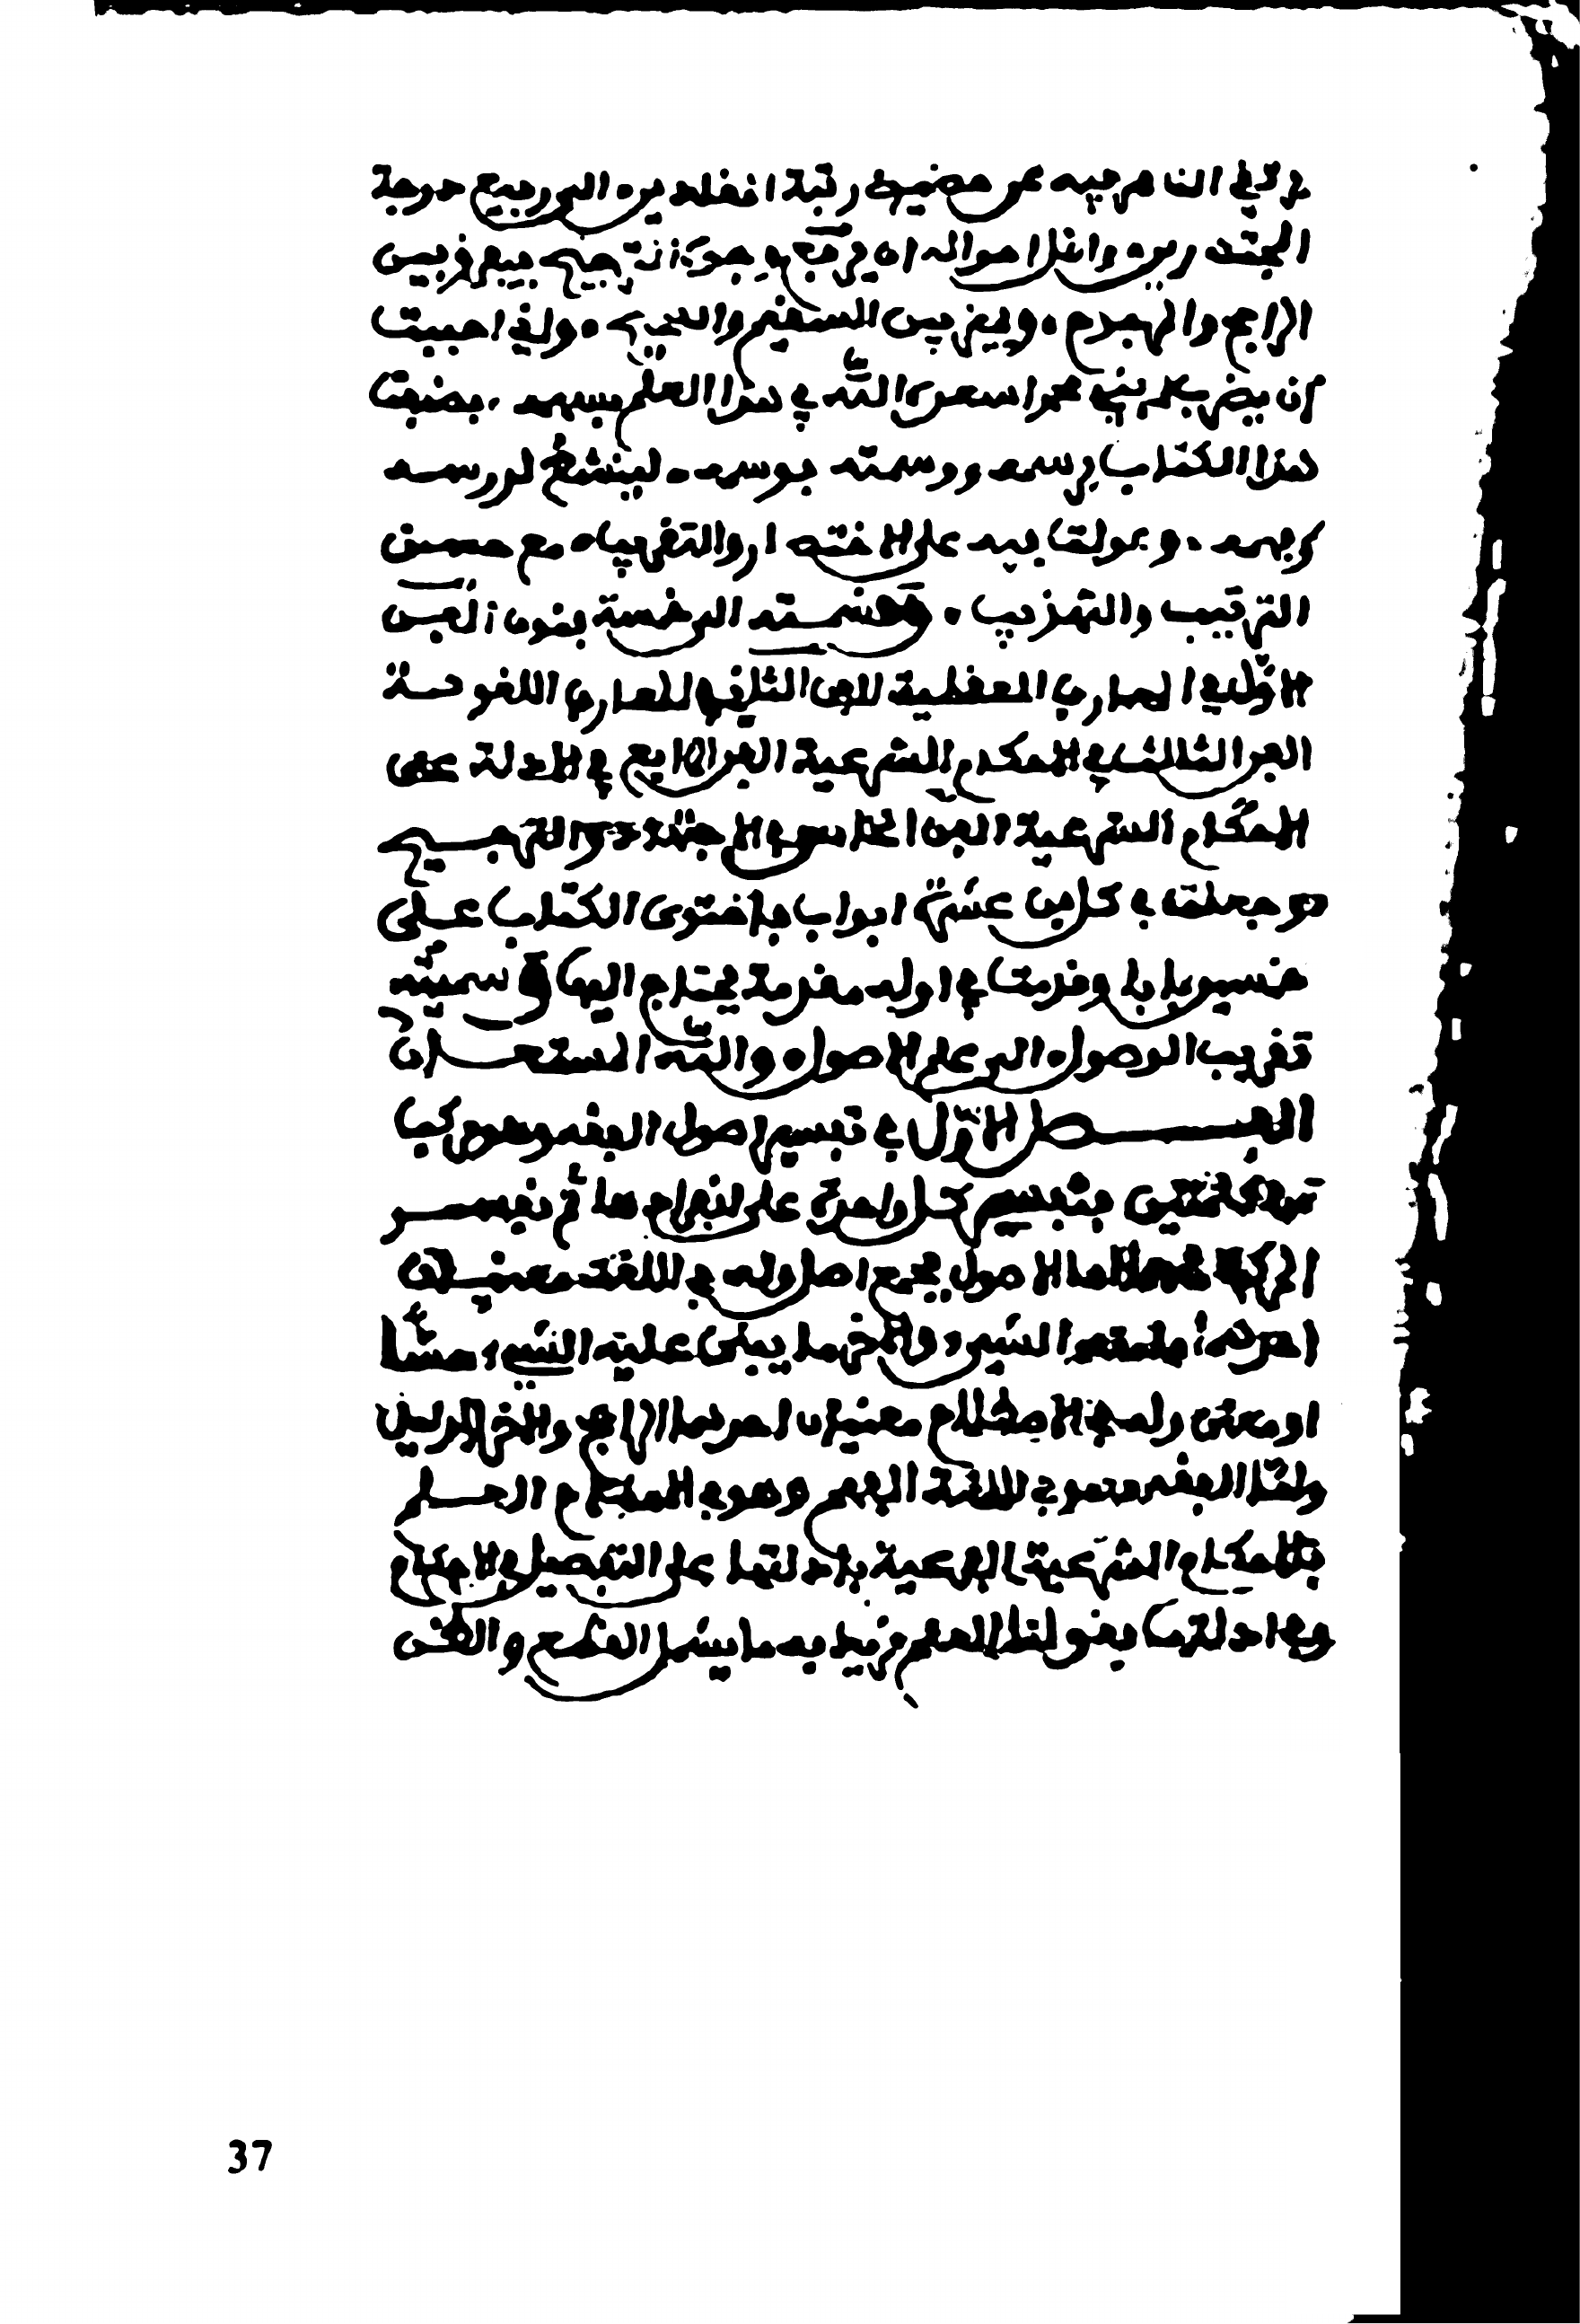 يرتقي الناظر فيه عن حضيض رتبة المقلدين الى رفيع درجة
المجتهدين واقل احواله ان يعرف وجوه الترجيح فيفرق بين
الراجح والمرجوح ويميز بين السقيم والصحيح واني احببت
ان يضرب ابني محمد اسعده الله في هذا العلم بسهم فصنفت
هذا الكتاب برسمه ووسمته بوسمه لينشط لدرسه
وفهمه وعولت فيه على الاختصار والتقريب مع حسن
الترتيب والتهذيب وقسمته الى خمسة فنون الفن
الاول في المعارف العقلية الفن الثاني في المعارف اللغوية
الفن الثالث في الاحكام الشرعية الفن الرابع في الادلة على
الاحكام الشرعية الفن الخامس في الاجتهاد والترجيح
وجعلت في كل فن عشرة ابواب فاحتوى الكتاب على
خمسين بابا وقدمت في اوله مقدمة يحتاج اليها وسميته
تقريب الوصول الى علم الاصول والله المستعان
الفصل الاول في تفسير اصول الفقه وهو مركب
من كلمتين فنفسر كل واحدة على انفرادها ثم نفسر
المركب اما الاصول فجمع اصل وله في اللغة معنيان
احدهما منشأ الشيء والاخر ما يبنى عليه الشيء حسا
او معنى وله في الاصطلاح معنيان احدهما الراجح والاخر الدليل
واما الفقه فهو في اللغة الفهم وهو في الاصطلاح العلم
بالاحكام الشرعية الفرعية بادلتها على التفصيل الاحكام
وادلتها فقولنا العلم نريد به ما يشمل القطع والظن
37